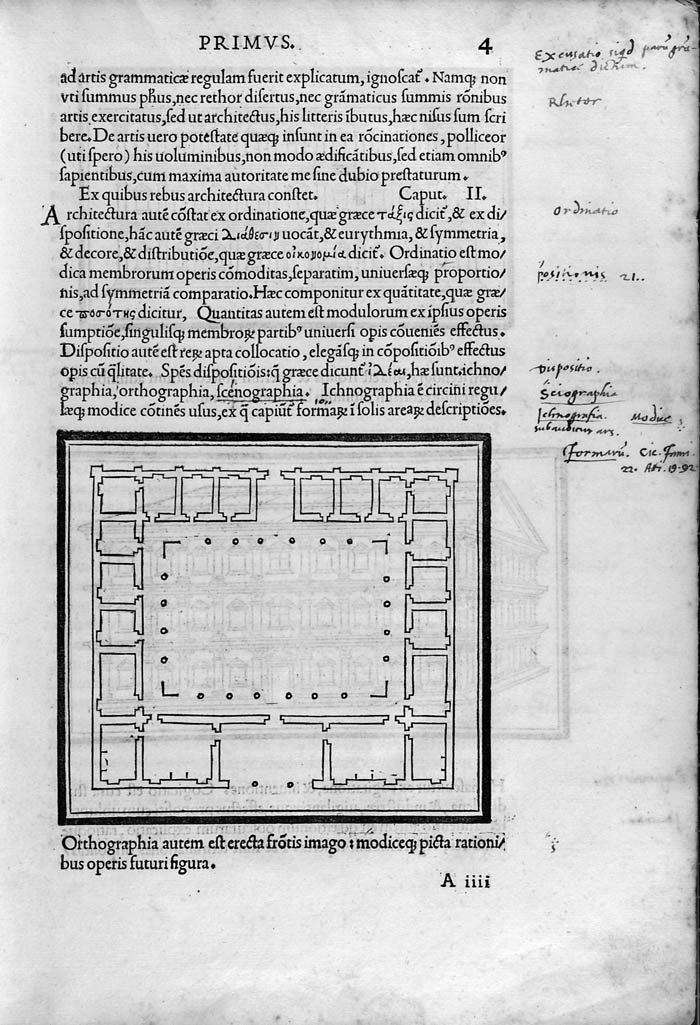 PRIMVS.
4
ad artis grammaticæ regulam fuerit explicatum, ignoscat̃. Namq; non
vti summus ph̃us, nec rethor disertus, nec grãmaticus summis rõnibus
artis exercitatus, sed ut architectus, his litteris ĩbutus, hæc nisus sum scri
bere. De artis uero potestate quæq; insunt in ea rõcinationes, polliceor
(uti spero) his uoluminibus, non modo ædificãtibus, sed etiam omnibꝰ
sapientibus, cum maxima autoritate me sine dubio prestaturum.
Ex quibus rebus architectura constet. Caput. II.
Architectura autẽ cõstat ex ordinatione, quæ græce τάξις dicit̃, & ex di/
spositione, hãc autẽ græci διάθεσιν uocãt, & eurythmia, & symmetria,
& decore, & distributiõe, quæ græce οἰκονομία dicit̃. Ordinatio est mo/
dica membrorum operis cõmoditas, separatim, uniuersæq; proportio/
nis, ad symmetriã comparatio. Hæc componitur ex quãtitate, quæ græ/
ce ποσότης dicitur, Quantitas autem est modulorum ex ipsius operis
sumptiõe, singulisq; membroꝝ partibꝰ uniuersi opis cõueniẽs effectus.
Dispositio autẽ est reꝝ apta collocatio, elegãsq; in cõpositiõibꝰ effectus
opis cũ q̃litate. Spẽs dispositiõis: q̃ græce dicunt̃ ἰδέαι, hæ sunt. ichno/
graphia, orthographia, scenographia. Ichnographia ẽ circini regu/
læq; modice cõtinẽs usus, ex q̃ capiũt̃ formaꝝ ĩ solis areaꝝ descriptiões.
Orthographia autem est erecta frõtis imago: modiceq; picta rationi/
bus operis futuri figura.
A iiii
Excusatio
Rhetor
Ordinatio
positionis 21..
Dispositio.
Sciographia
Ichnografia. Modice
subauditur ars.
Formarũ. Cic.